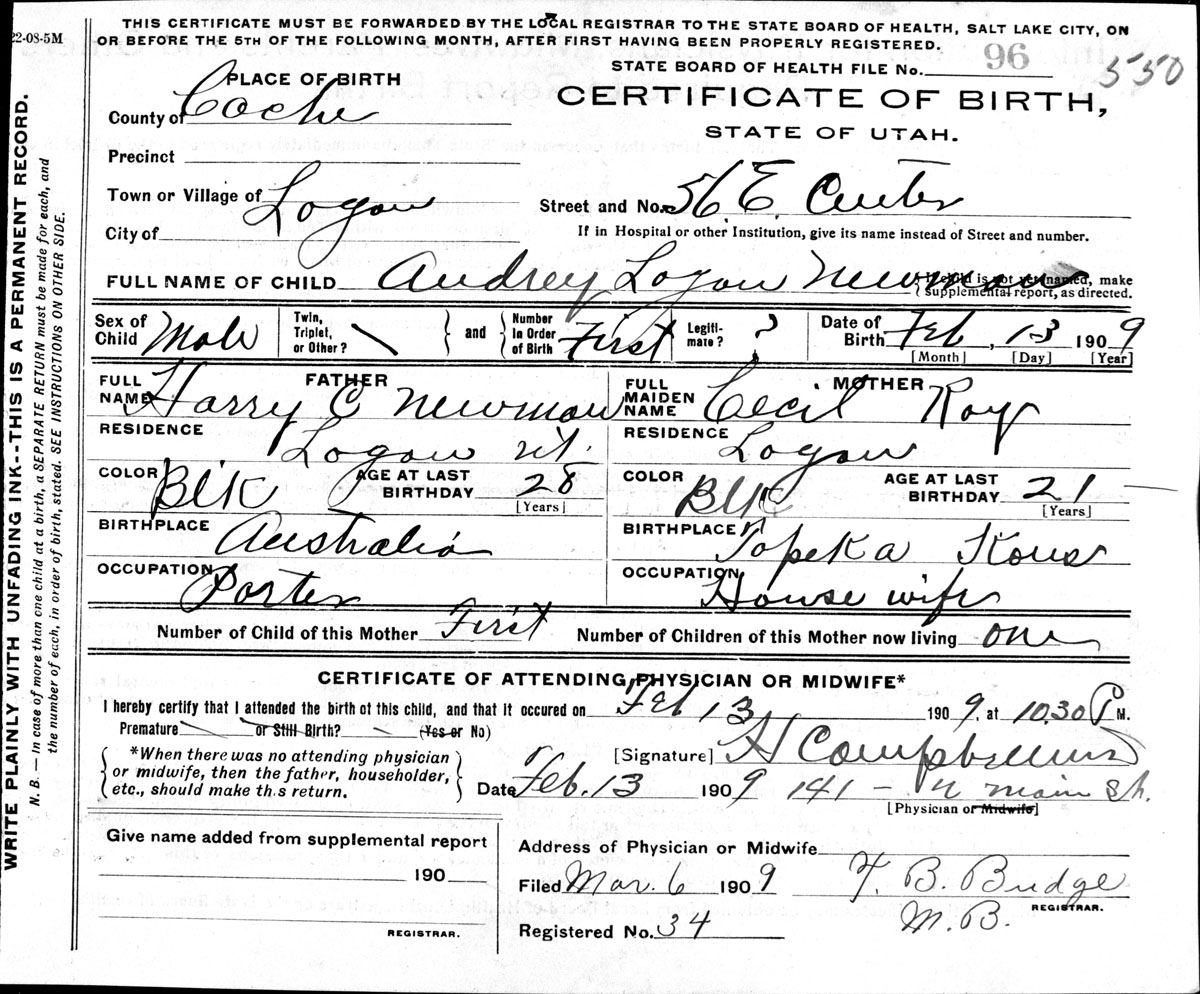 22-08-5M
THIS CERTIFICATE MUST BE FORWARDED BY THE LOCAL REGISTRAR TO THE STATE BOARD OF HEALTH, SALT LAKE CITY, ON
OR BEFORE THE 5TH OF THE FOLLOWING MONTH, AFTER FIRST HAVING BEEN PROPERLY REGISTERED.
STATE BOARD OF HEALTH FILE No. 96 550
PLACE OF BIRTH
CERTIFICATE OF BIRTH,
STATE OF UTAH.
County of Cache
Precinct
Town or Village of Logan
Street and No. 56 E. Center
City of
If in Hospital or other Institution, give its name instead of Street and number.
FULL NAME OF CHILD Audrey Logan Newman
If child is not yet named, make supplemental report, as directed.
Sex of Child Male Twin, Triplet, or Other? \ and Number in Order of Birth First Legitimate? ? Date of Birth Feb, 13 1909
[Month] [Day] [Year]
FATHER
FULL NAME Harry C Newman
RESIDENCE Logan Ut.
COLOR Blk AGE AT LAST BIRTHDAY 28
[Years]
BIRTHPLACE Australia
OCCUPATION Porter
MOTHER
FULL MAIDEN NAME Cecil Roy
RESIDENCE Logan
COLOR Blk AGE AT LAST BIRTHDAY 21
[Years]
BIRTHPLACE Topeka Kans
OCCUPATION House wife
Number of Child of this Mother First Number of Children of this Mother now living one
CERTIFICATE OF ATTENDING PHYSICIAN OR MIDWIFE*
I hereby certify that I attended the birth of this child, and that it occured on Feb 13 1909, at 10.30 P M.
Premature or Still Birth? (Yes or No)
*When there was no attending physician
or midwife, then the father, householder,
etc., should make this return.
[Signature] H Campbell
Date Feb. 13 1909 141 - N main St.
[Physician or Midwife]
Give name added from supplemental report
190
REGISTRAR.
Address of Physician or Midwife
Filed Mar. 6 1909 T. B. Budge
REGISTRAR.
M.B.
Registered No. 34
WRITE PLAINLY WITH UNFADING INK--THIS IS A PERMANENT RECORD.
N. B. — In case of more than one child at a birth, a SEPARATE RETURN must be made for each, and
the number of each, in order of birth, stated. SEE INSTRUCTIONS ON OTHER SIDE.